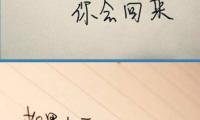 你会回来
如果